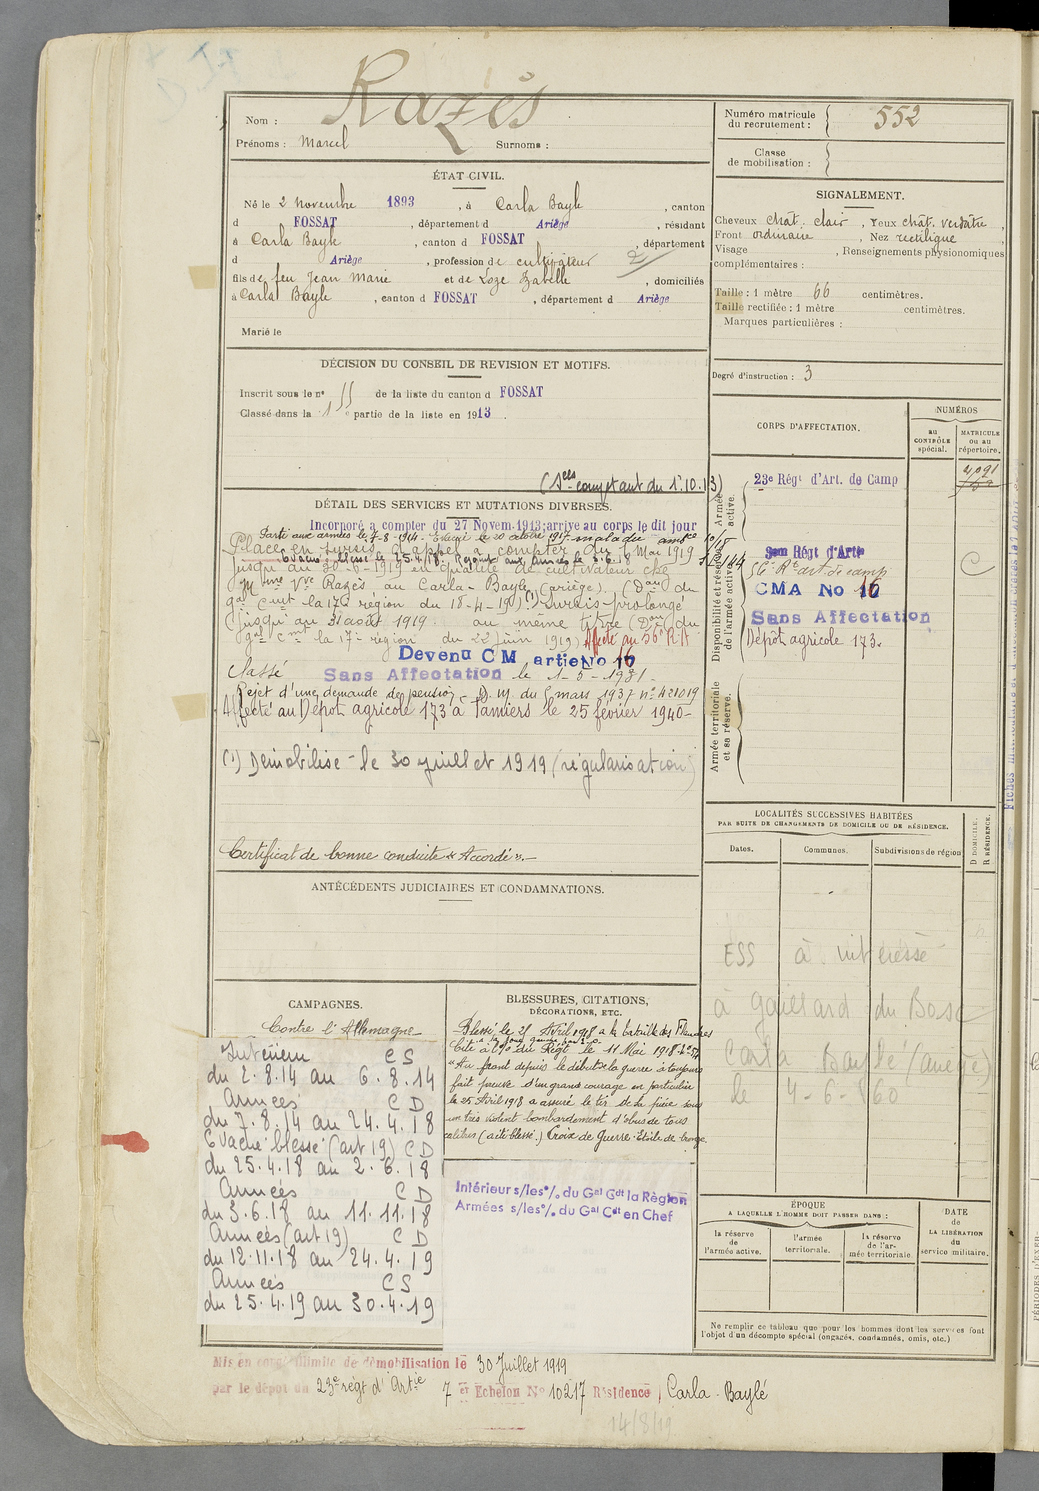 Razès
Nom :
Prénoms : Marcel Surnoms :
Numéro matricule du recrutement : 552
Classe de mobilisation :
ÉTAT CIVIL.
Né le 2 Novembre 1893, à Carla Bayle, canton
d FOSSAT, département d Ariège, résidant
à Carla Bayle, canton d FOSSAT, département
d Ariège, profession de cultivateur
fils de feu Jean Marie et de Loze Zabelle, domiciliés
à Carla Bayle, canton d FOSSAT, département d Ariège
Marié le
SIGNALEMENT.
Cheveux chât. clair, Yeux chât. verdâtre,
Front ordinaire, Nez rectiligne,
Visage , Renseignements physionomiques
complémentaires :
Taille : 1 mètre 66 centimètres.
Taille rectifiée : 1 mètre centimètres.
Marques particulières :
Degré d'instruction : 3
DÉCISION DU CONSEIL DE REVISION ET MOTIFS.
Inscrit sous le n° 155 de la liste du canton d FOSSAT
Classé dans la 1e partie de la liste en 1913.
(Sces comptant du 1.10.13)
DÉTAIL DES SERVICES ET MUTATIONS DIVERSES.
Incorporé à compter du 27 Novem. 1913; arrivé au corps le dit jour
Parti aux armées le 7-8-1914 - Evacué le 20 octobre 1917 - malade
Evacué blessé le 25.4.18. Rejoint aux armées le 3.6.18
Placé en sursis d'appel à compter du 6 Mai 1919
en qualité de cultivateur chez
Mme Vve Razès au Carla-Bayle (Ariège). (Don du
gal Cmt la 17e région du 18-4-19) (1) Sursis prolongé
jusqu'au 31 août 1919. au même titre (Don du
gal Cmt la 17e région du 22 juin 1919) Affecté au 56e RA
Devenu CM artie No 16
Classé Sans Affectation le 1-5-1931.
Rejet d'une demande de pension - D. M. du 5 mars 1937 n° 421019
Affecté au Dépôt agricole 173 à Pamiers le 25 février 1940-
(1) Démobilisé - le 30 juillet 1919 (régularisation)
Certificat de bonne conduite « Accordé ».-
CORPS D'AFFECTATION.
NUMÉROS
AU CONTRÔLE spécial.
MATRICULE ou au répertoire.
Armée active.
23e Régt d'Art. de Camp
4091
Disponibilité et réserve de l'armée active.
56e Rt art. de camp
CMA No 16
Sans Affectation
Dépôt agricole 173.
Armée territoriale et sa réserve.
LOCALITÉS SUCCESSIVES HABITÉES
PAR SUITE DE CHANGEMENTS DE DOMICILE OU DE RÉSIDENCE.
Dates. Communes. Subdivisions de région
D DOMICILE. R RÉSIDENCE.
ESS à intéressé
à Gaillard du Bosc
Carla Bayle (Ariège)
le 4-6-1960
ANTÉCÉDENTS JUDICIAIRES ET CONDAMNATIONS.
CAMPAGNES.
Contre l'Allemagne
Intérieur CS
du 2.8.14 au 6.8.14
Armées CD
du 7.8.14 au 24.4.18
Evacué blessé (art 19) CD
du 25.4.18 au 2.6.18
Armées CD
du 3.6.18 au 11.11.18
Armées (art 19) CD
du 12.11.18 au 24.4.19
Armées CS
du 25.4.19 au 30.4.19
BLESSURES, CITATIONS,
DÉCORATIONS, ETC.
Blessé le 25 Avril 1918 à la bataille des Flandres
Cité à l'o du Régt le 11 Mai 1918
"Au front depuis le début de la guerre a toujours
fait preuve d'un grand courage en particulier
le 25 Avril 1918 a assuré le tir de la pièce sous
un très violent bombardement d'obus de tous
calibres (a été blessé.) Croix de Guerre Etoile de bronze.
Intérieur s/les % du Gal Cdt la Région
Armées s/les % du Gal Cdt en Chef
ÉPOQUE
A LAQUELLE L'HOMME DOIT PASSER DANS :
la réserve de l'armée active.
l'armée territoriale.
la réserve de l'armée territoriale.
DATE DE LA LIBÉRATION du service militaire.
Ne remplir ce tableau que pour les hommes dont les services font
l'objet d'un décompte spécial (engagés, condamnés, omis, etc.)
Mis en congé illimité de démobilisation le 30 Juillet 1919
par le dépôt du 23e régt d'Artie 7e Echelon No 10217 Résidence Carla-Baylé
14/8/19